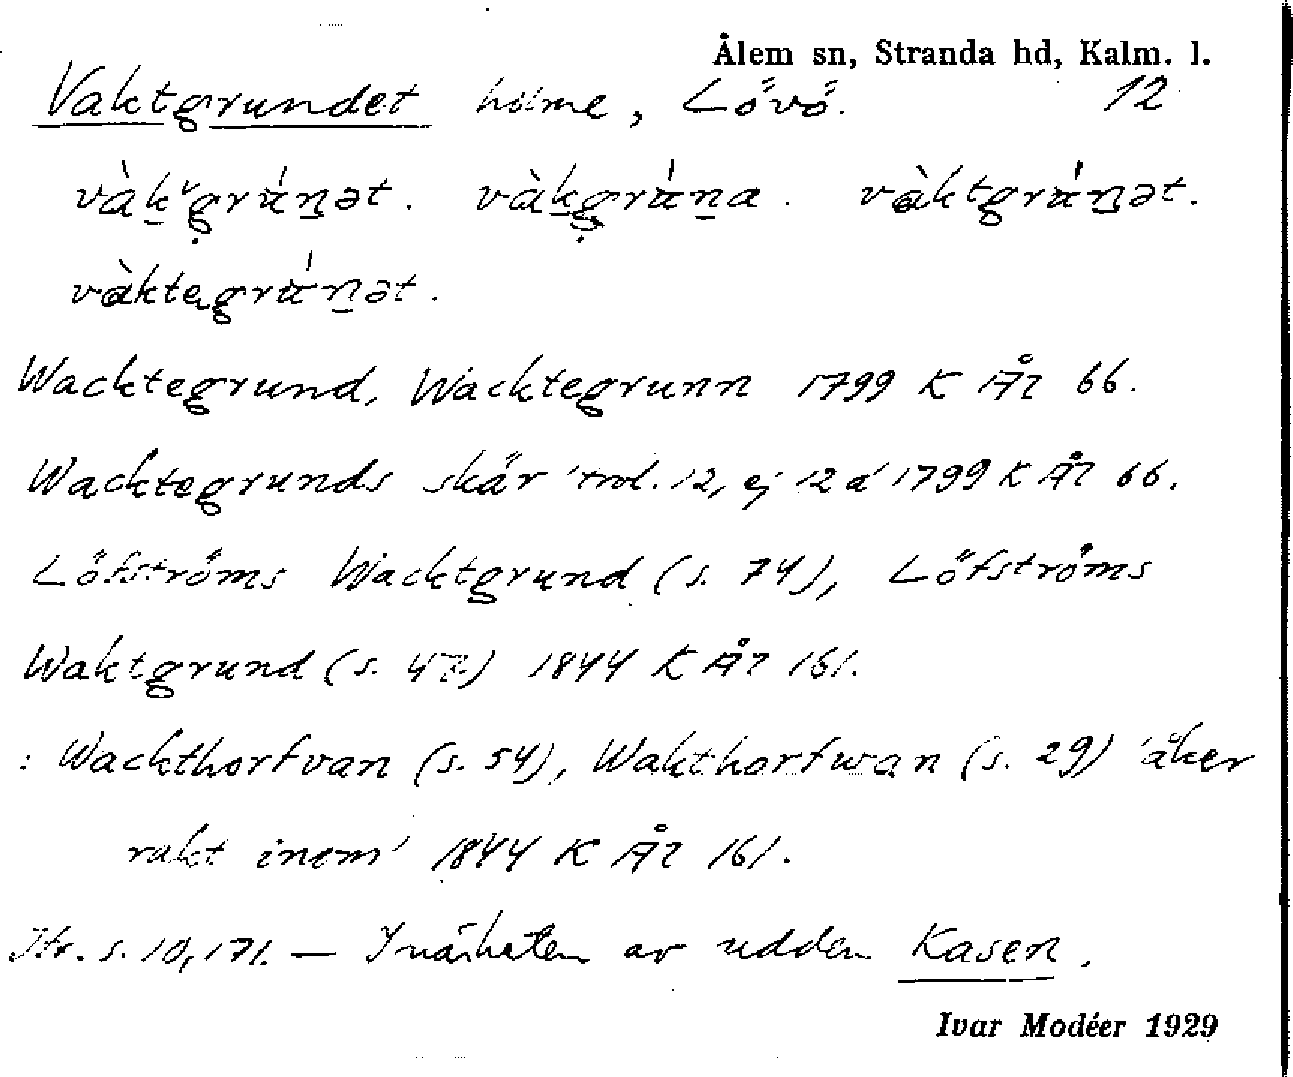 Ålem sn, Stranda hd, Kalm. l.
Vaktgrundet holme, Lövö. 12
vàk'gránət. vàkgrána. vàktgránət.
vàktegránət.
Wacktegrund, Wacktegrunn 1799 K ÅR 66.
Wacktegrunds skär 'trol. 12, ej 12a' 1799 K ÅR 66.
Löfströms Wacktgrund (s. 74), Löfströms
Waktgrund (s. 47) 1844 K ÅR 161.
: Wackthorfvan (s. 54), Wakthorfwan (s. 29) 'åker
rakt inom' 1844 K ÅR 161.
Jfr. s. 10, 171. — I närheten av udden Kasen.
Ivar Modéer 1929